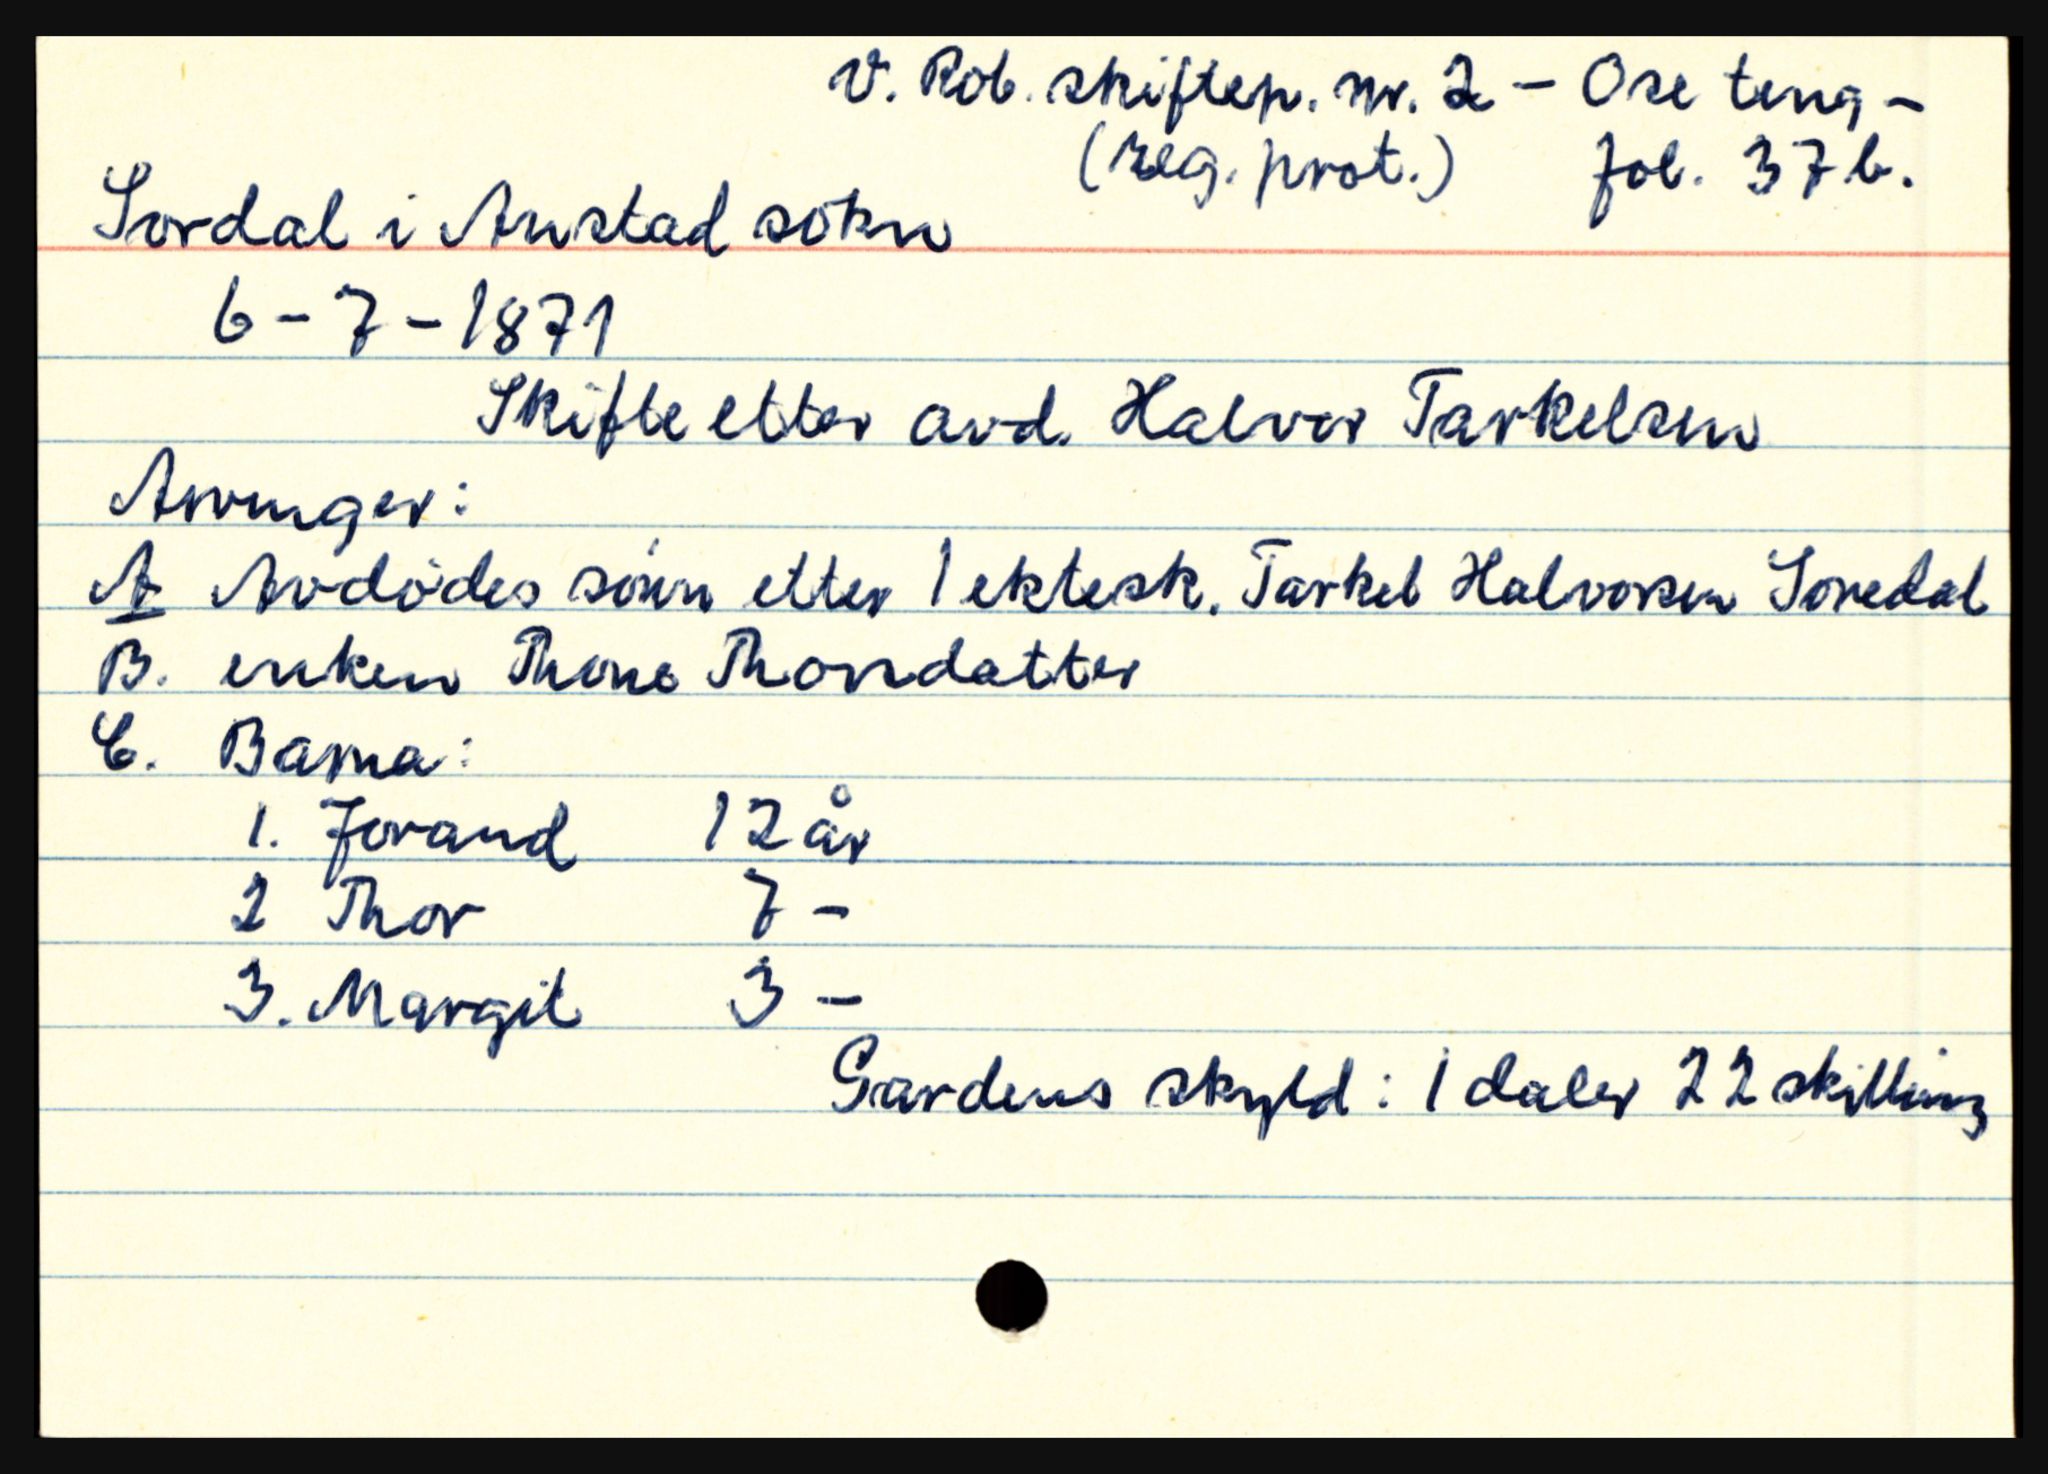 V. Rob. skiftep. nr. 2 - Ose ting -
(reg. prot.) fol. 37b.
Sordal i Austad sokn
6-7-1871
Skifte etter avd. Halvor Tarkelsen
Arvinger:
A Avdødes sønn etter 1 ektesk. Tarkel Halvorsen Soredal
B. enken Thone Thorsdatter
C. Barna:
1. Jorand 12 år
2 Thor 7 -
3. Margit 3 -
Gardens skyld: 1 daler 22 skilling